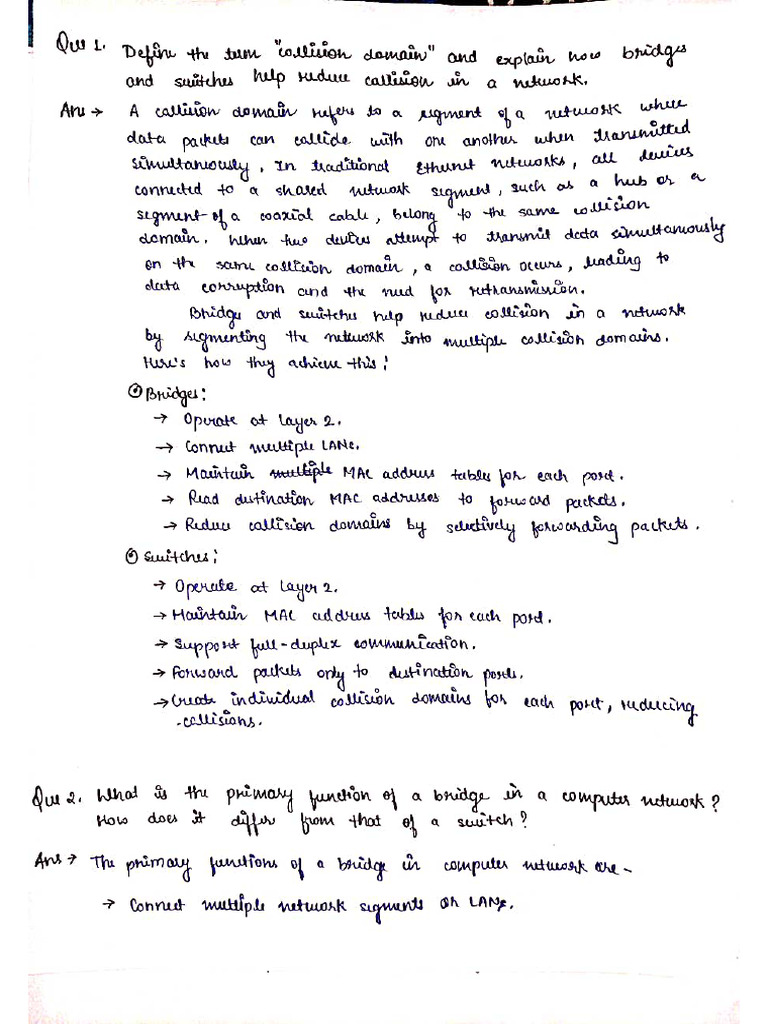 Que 1. Define the term "collision domain" and explain how bridges
and switches help reduce collision in a network.
Ans → A collision domain refers to a segment of a network where
data packets can collide with one another when transmitted
simultaneously. In traditional Ethernet networks, all devices
connected to a shared network segment, such as a hub or a
segment of a coaxial cable, belong to the same collision
domain. When two devices attempt to transmit data simultaneously
on the same collision domain, a collision occurs, leading to
data corruption and the need for retransmission.
Bridge and switches help reduce collision in a network
by segmenting the network into multiple collision domains.
Here's how they achieve this:
Bridges:
→ Operate at Layer 2.
→ Connect multiple LANs.
→ Maintain multiple MAC address tables for each port.
→ Read destination MAC addresses to forward packets.
→ Reduce collision domains by selectively forwarding packets.
Switches:
→ Operate at Layer 2.
→ Maintain MAC address tables for each port.
→ Support full-duplex communication.
→ Forward packets only to destination ports.
→ Create individual collision domains for each port, reducing
collisions.
Que 2. What is the primary function of a bridge in a computer network?
How does it differ from that of a switch?
Ans → The primary functions of a bridge in computer network are -
→ Connect multiple network segments or LANs.